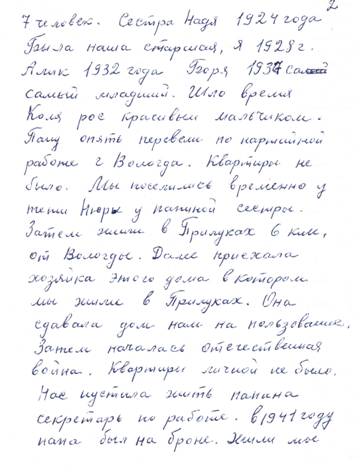 2
7 человек. Сестра Надя 1924 года
Была наша старшая, я 1928 г.
Алик 1932 года Боря 1937
самый младший. Шло время
Коля рос красивым мальчиком.
Папу опять перевели по партийной
работе г Вологда. Квартиры не
было. Мы поселились временно у
тети Нюры у папиной сестры.
Затем жили в Прилуках 6 км,
от Вологды. Даже приехала
хозяйка этого дома в котором
мы жили в Прилуках. Она
сдавала дом нам на пользование.
Затем началась отечественная
война. Квартиры личной не было.
Нас пустила жить папина
секретарь по работе. в 1941 году
папа был на броне. Жили мы